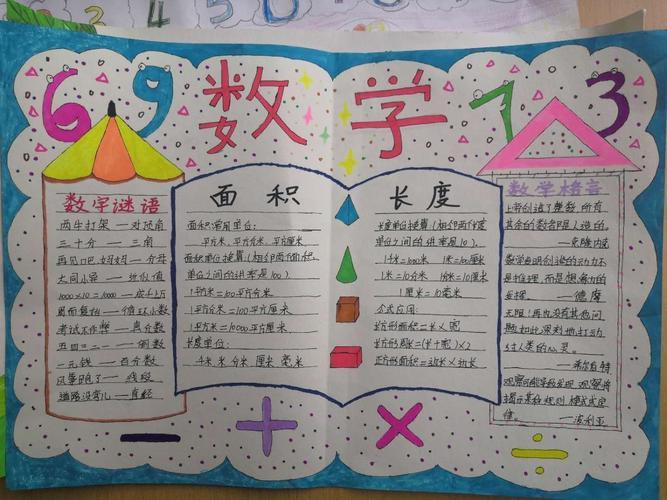 6 9 数学 7 3
数字谜语
两牛打架——对顶角
三十分——三角
再见巴，妈妈——分母
大同小异——近似值
1000×10=10000——成千上万
周而复始——循环小数
考试不作弊——真分数
五四三二一——倒数
一元钱——百分数
风筝跑了——线段
道路没弯儿——直径
面积
面积常用单位：
平方米，平方分米，平方厘米
面积单位换算(相邻两面积
单位之间的进率是100)
1平方米=100平方分米
1平方分米=100平方厘米
1平方米=10000平方厘米
长度单位：
千米 米 分米 厘米 毫米
长度
长度单位换算(相邻两长度
单位之间的进率是10)。
1千米=1000米 1米=100厘米
1米=10分米 1分米=10厘米
1厘米=10毫米
公式应用：
长方形面积=长×宽
长方形周长=(长+宽)×2
正方形面积=边长×边长
数学格言
上帝创造了整数，所有
其余的数都是人造的。
——克隆内克
数学发明创造的动力不
是推理，而是想象力的
发挥。——德摩
无限！再也没有其他问
题如此深刻地打动
过人类的心灵。
——希尔伯特
观察可能导致发现，观察将
揭示某种规则、模式或定
律。——波利亚
− + × ÷